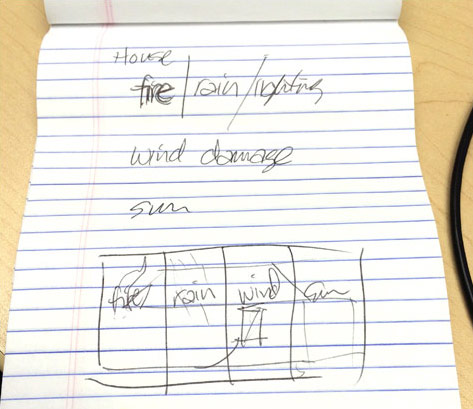 House
fire/rain/
wind damage
sun
fire rain wind sun